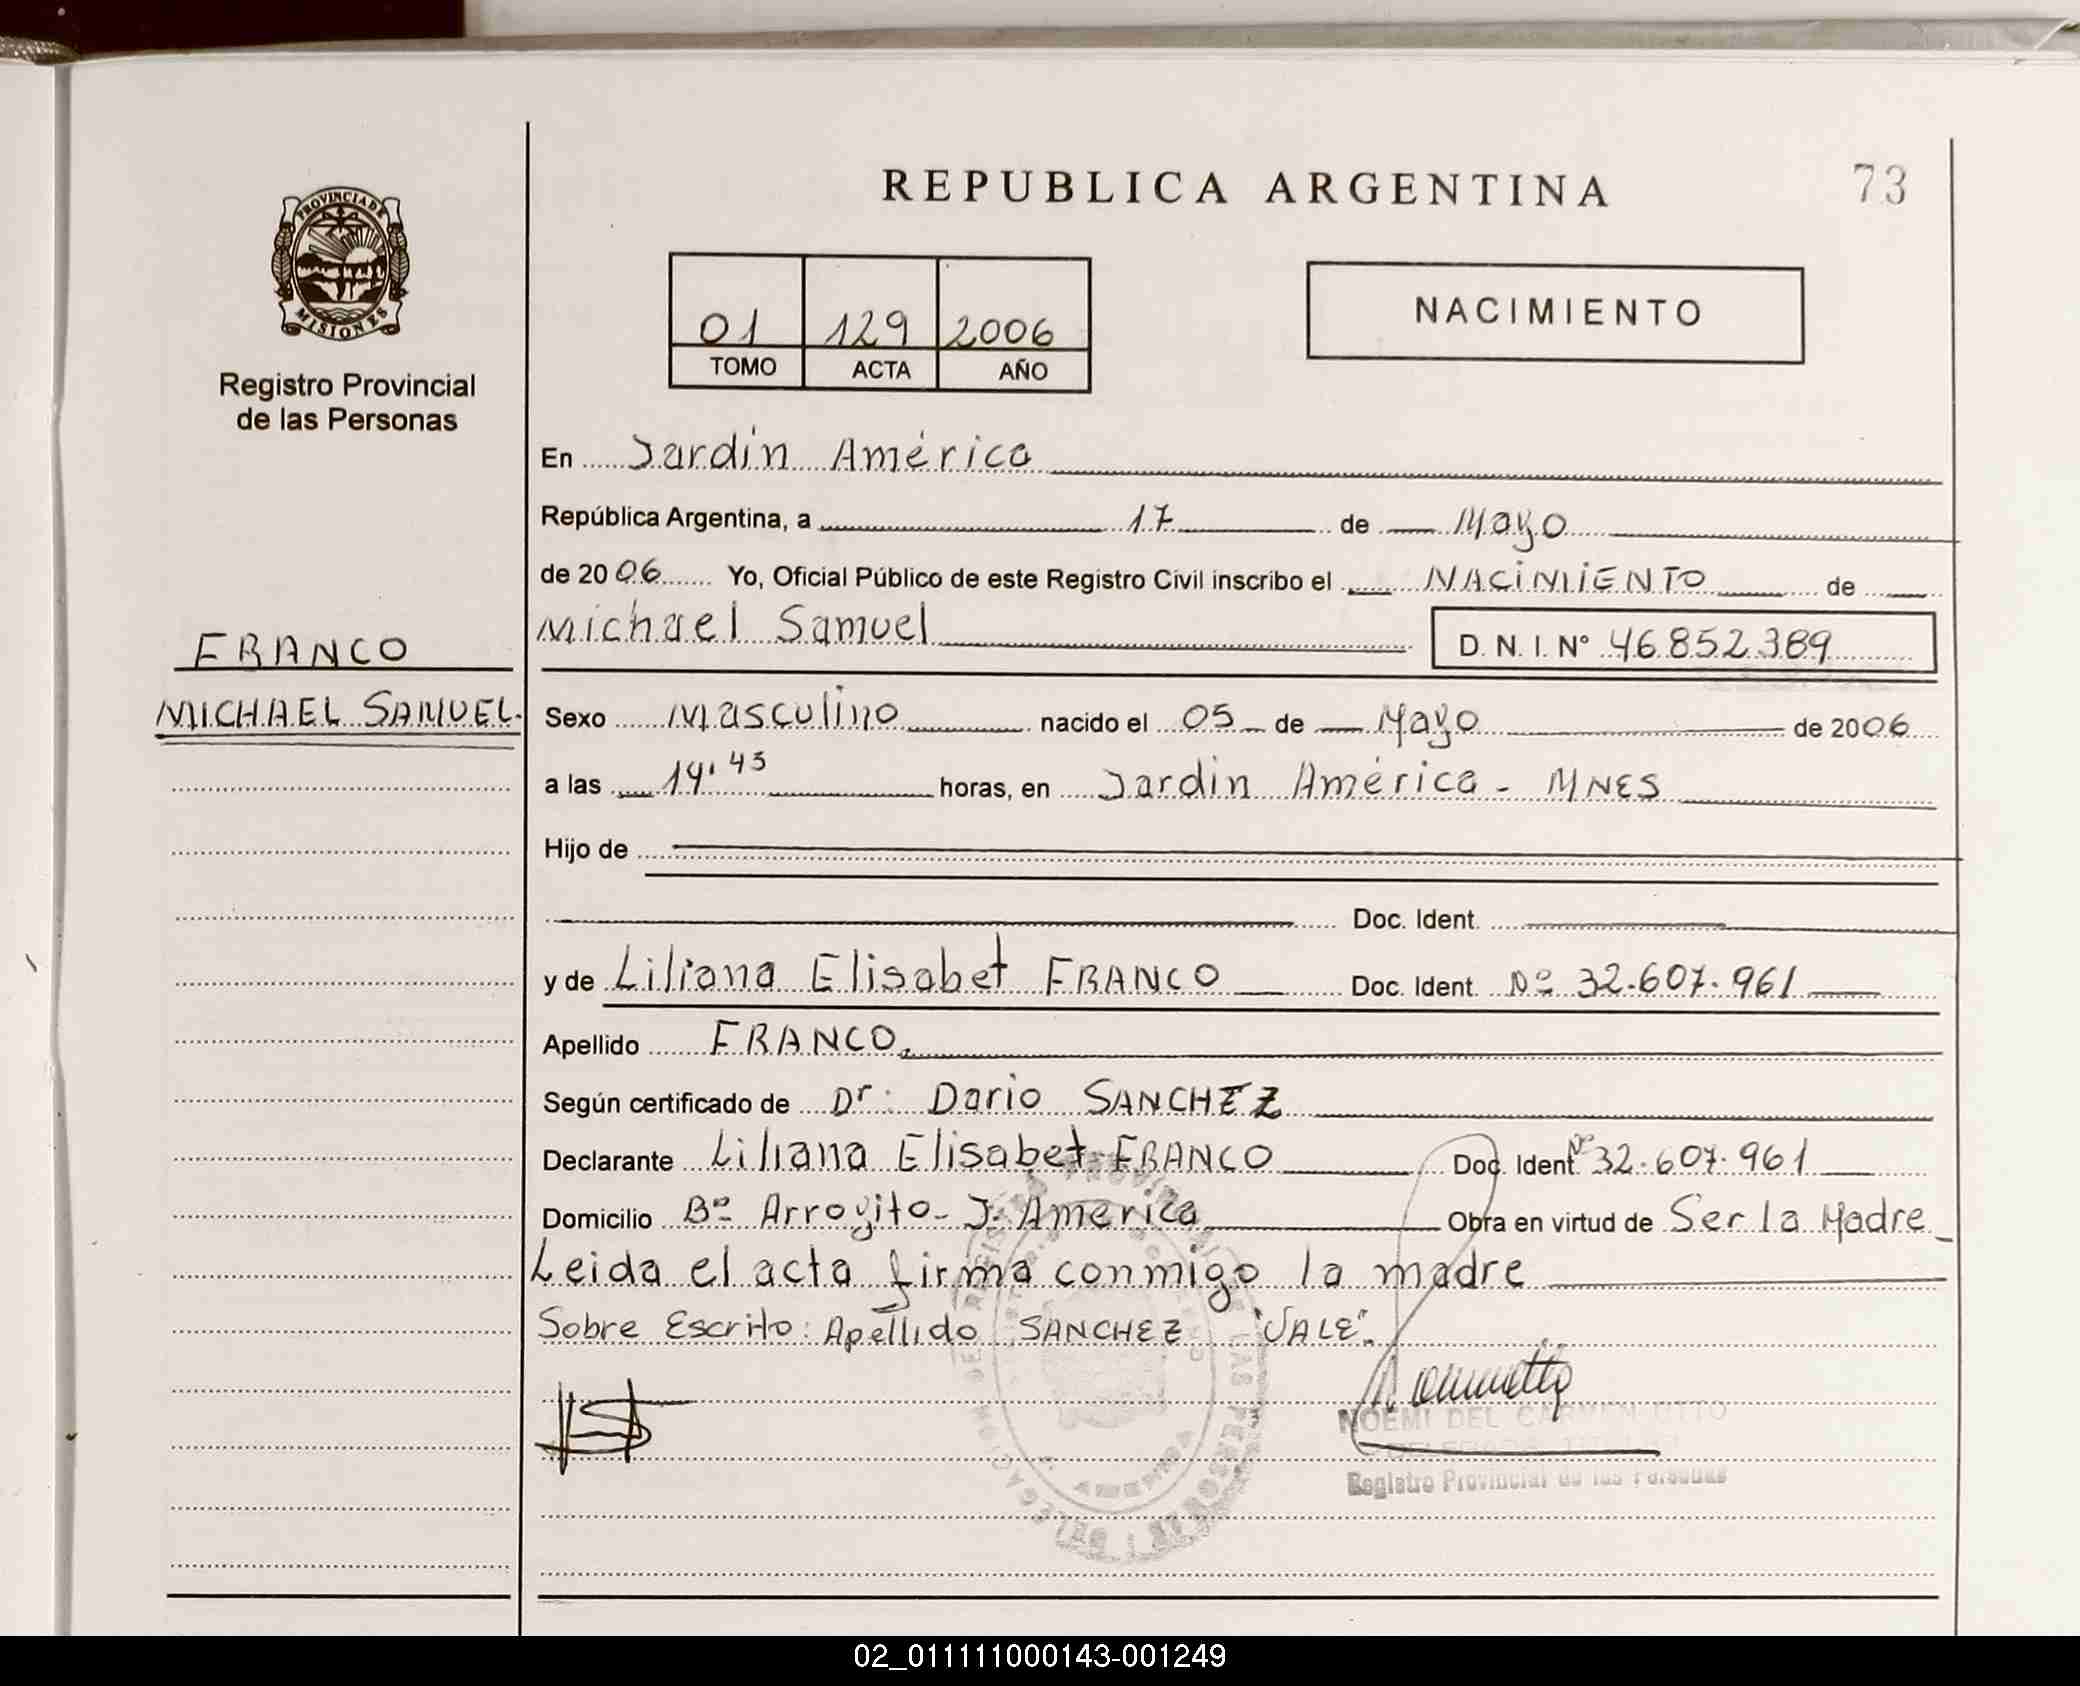 REPUBLICA ARGENTINA
73
PROVINCIA DE MISIONES
Registro Provincial
de las Personas
01 129 2006
TOMO ACTA AÑO
NACIMIENTO
En Jardín América
República Argentina, a 17 de Mayo
de 2006 Yo, Oficial Público de este Registro Civil inscribo el NACIMIENTO de
Michael Samuel D. N. I. Nº 46.852.389
FRANCO
MICHAEL SAMUEL.
Sexo Masculino nacido el 05 de Mayo de 2006
a las 14.43 horas, en Jardín América - MNES
Hijo de
Doc. Ident.
y de Liliana Elisabet FRANCO Doc. Ident. Nº 32.607.961
Apellido FRANCO.
Según certificado de Dr: Dario SANCHEZ
Declarante Liliana Elisabet FRANCO Doc. Ident Nº 32.607.961
Domicilio Bº Arroyito - J. América Obra en virtud de Ser la Madre
Leida el acta firma conmigo la madre
Sobre Escrito: Apellido SANCHEZ "VALE".
NOEMI DEL CARMEN OTTO
Registro Provincial de las Personas
02_011111000143-001249